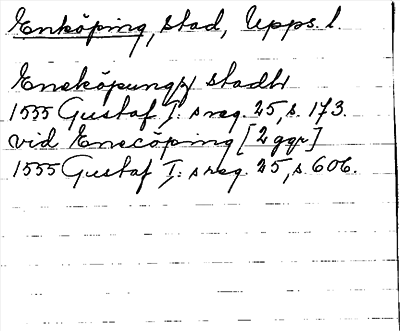 Enköping, stad, Upps. l.
Eneköpungz stadh
1555 Gustaf I:s reg. 25, s. 173.
vid Enecöping [2 ggr]
1555 Gustaf I:s reg. 25, s. 606.